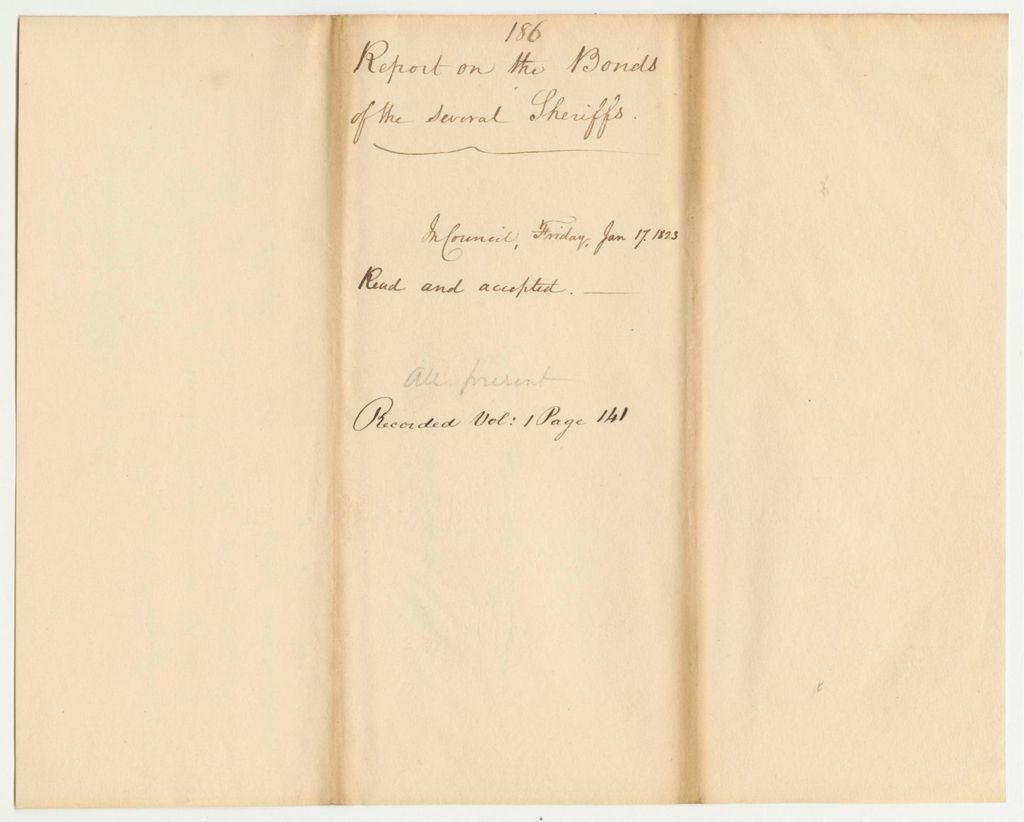 186
Report on the Bonds
of the several Sheriffs.
In Council, Friday, Jan 17. 1823
Read and accepted. —
All present
Recorded Vol: 1 Page 141